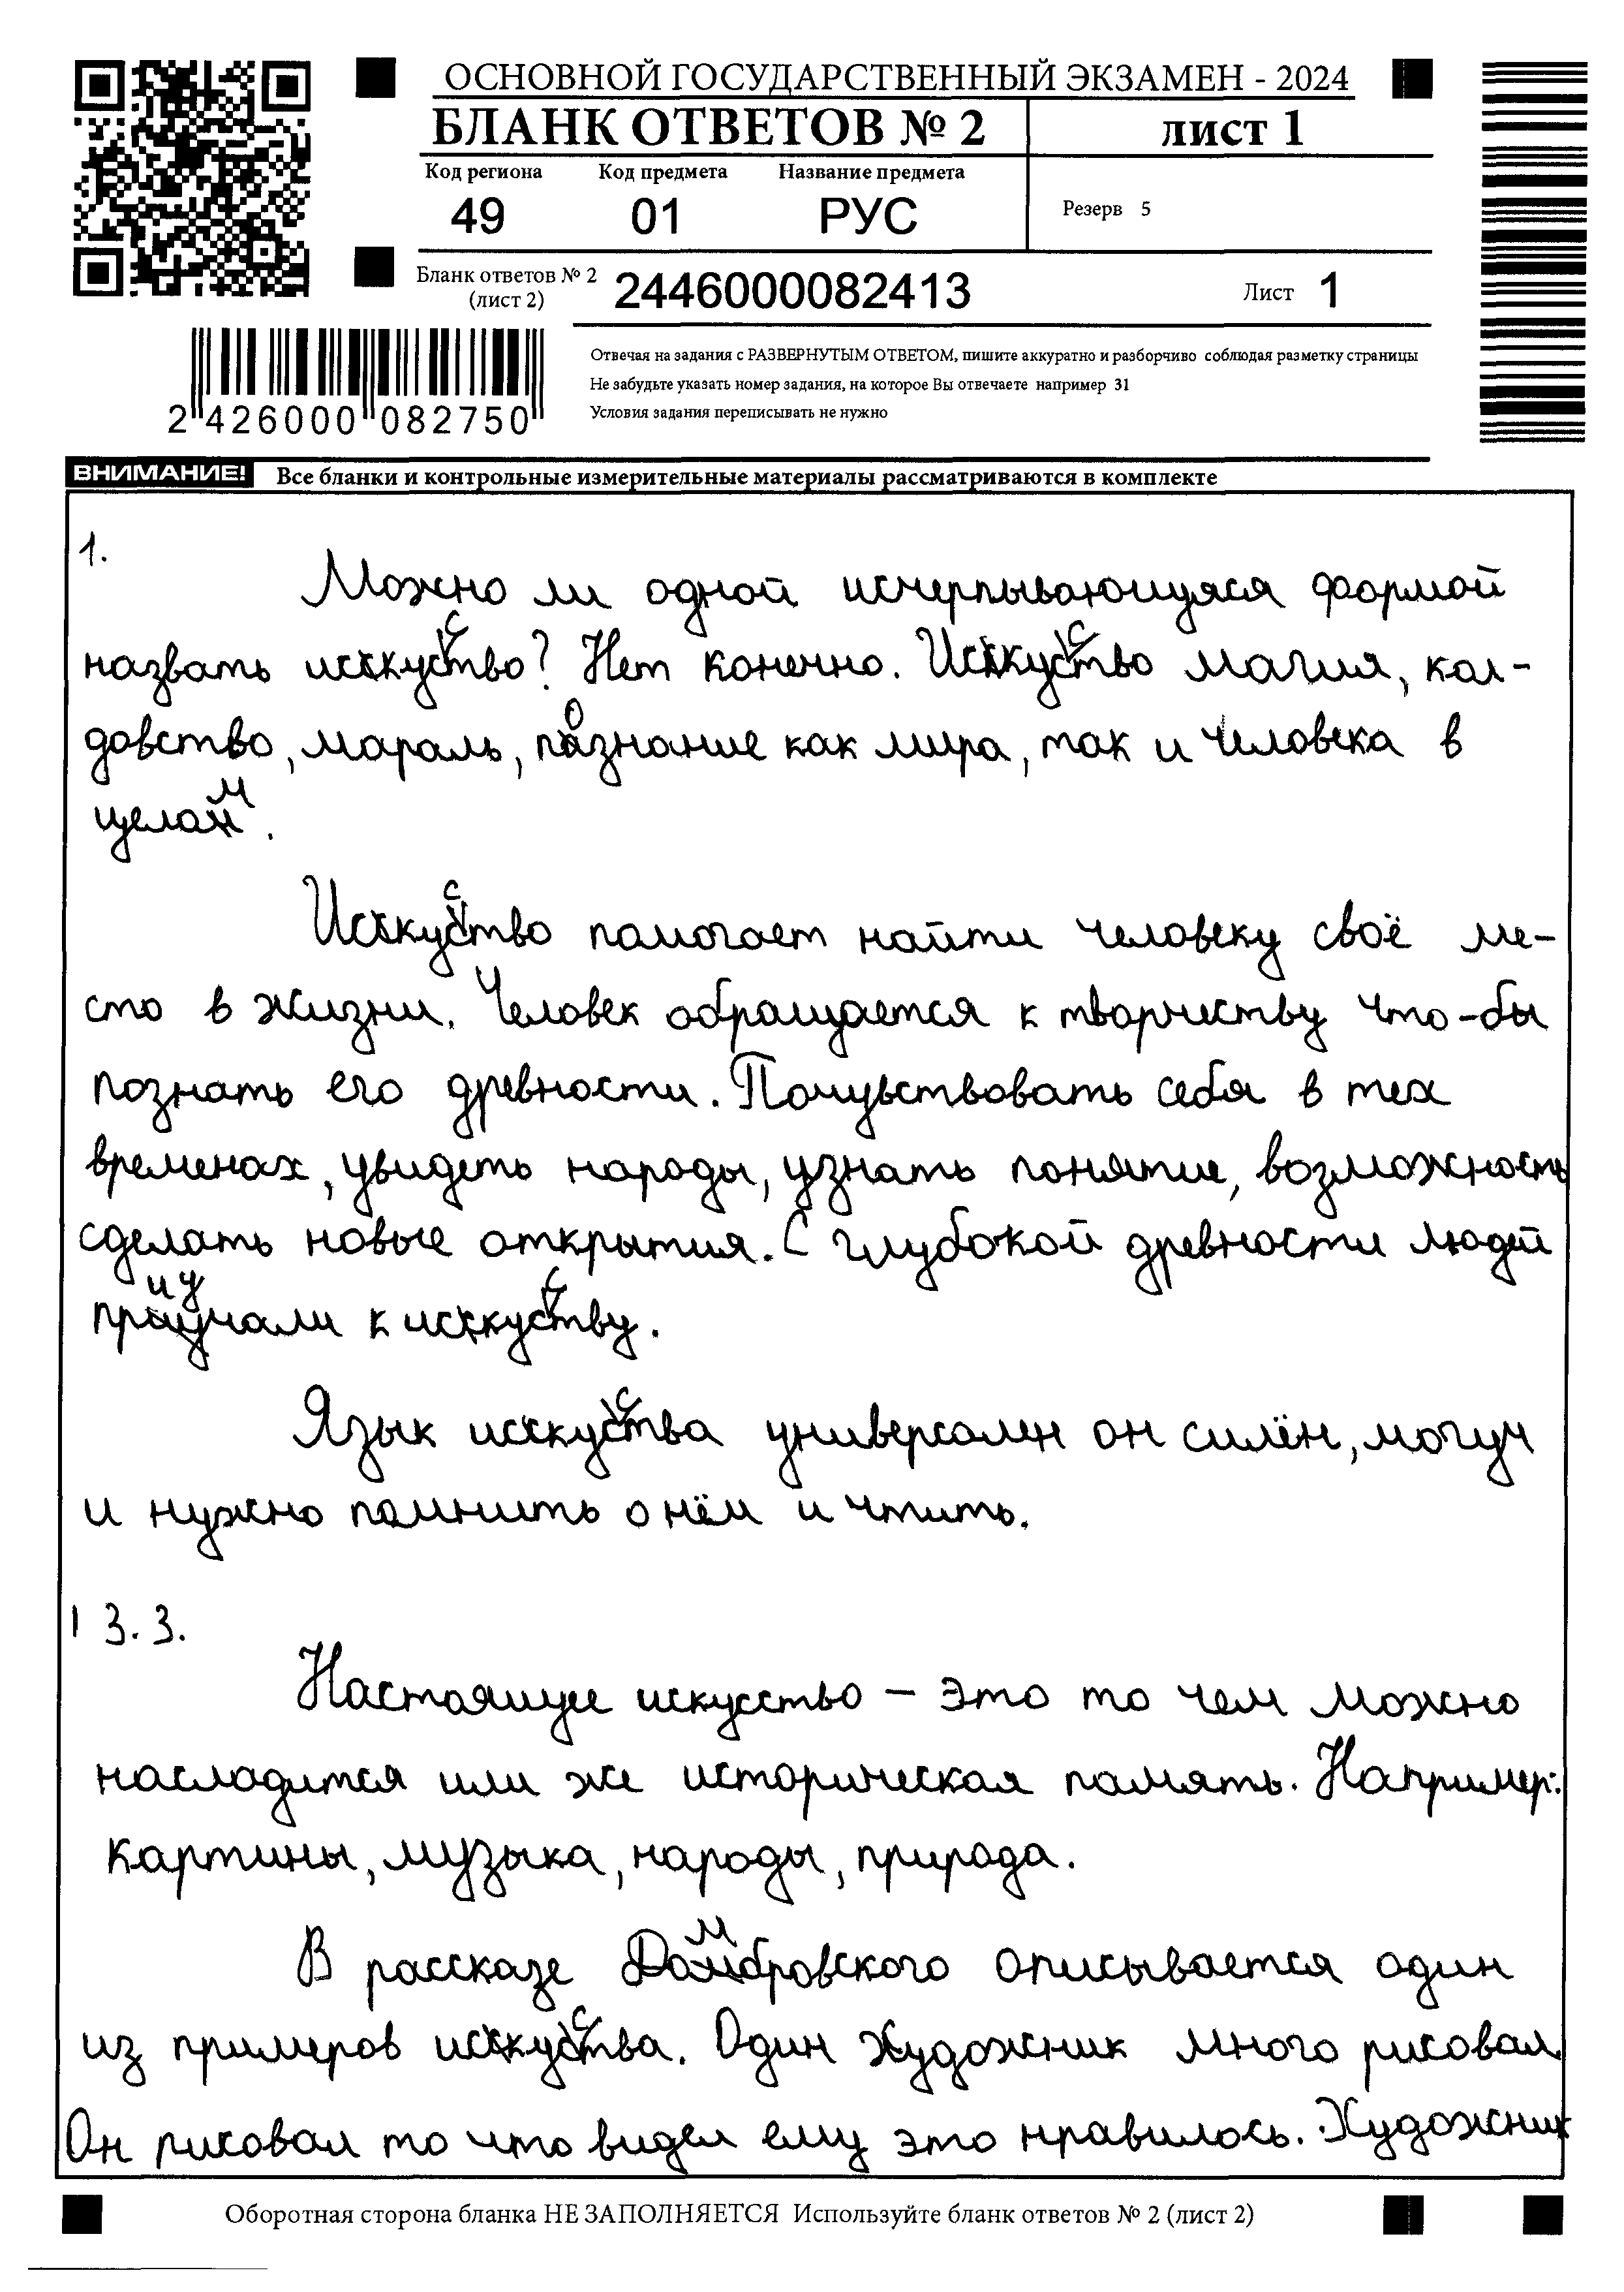 ОСНОВНОЙ ГОСУДАРСТВЕННЫЙ ЭКЗАМЕН - 2024
БЛАНК ОТВЕТОВ № 2
лист 1
Код региона Код предмета Название предмета
49 01 РУС
Резерв 5
Бланк ответов № 2
(лист 2)
2446000082413
Лист 1
2 426000 082750
Отвечая на задания с РАЗВЕРНУТЫМ ОТВЕТОМ, пишите аккуратно и разборчиво соблюдая разметку страницы
Не забудьте указать номер задания, на которое Вы отвечаете например 31
Условия задания переписывать не нужно
ВНИМАНИЕ! Все бланки и контрольные измерительные материалы рассматриваются в комплекте
1.
Можно ли одной исчерпывающиуяся формой
назвать искусство? Нет конечно. Искусство магия, кол-
довство, мараль, познание как мира, так и человека в
целом.
Искусство помогает найти человеку своё ме-
сто в жизни. Человек обращается к творчеству что-бы
познать его древности. Почувствовать себя в тех
временах, увидеть народы, узнать понятие, возможность
сделать новые открытия. С глубокой древности людей
приучали к искусству.
Язык искусства универсален он силён, могуч
и нужно помнить о нём и чтить.
13.3.
Настоящее искусство – это то чем можно
насладится или же историческая память. Например:
картины, музыка, народы, природа.
В рассказе Домбровского описывается один
из примеров искусства. Один художник много рисовал
Он рисовал то что видел ему это нравилось. Художник
Оборотная сторона бланка НЕ ЗАПОЛНЯЕТСЯ Используйте бланк ответов № 2 (лист 2)